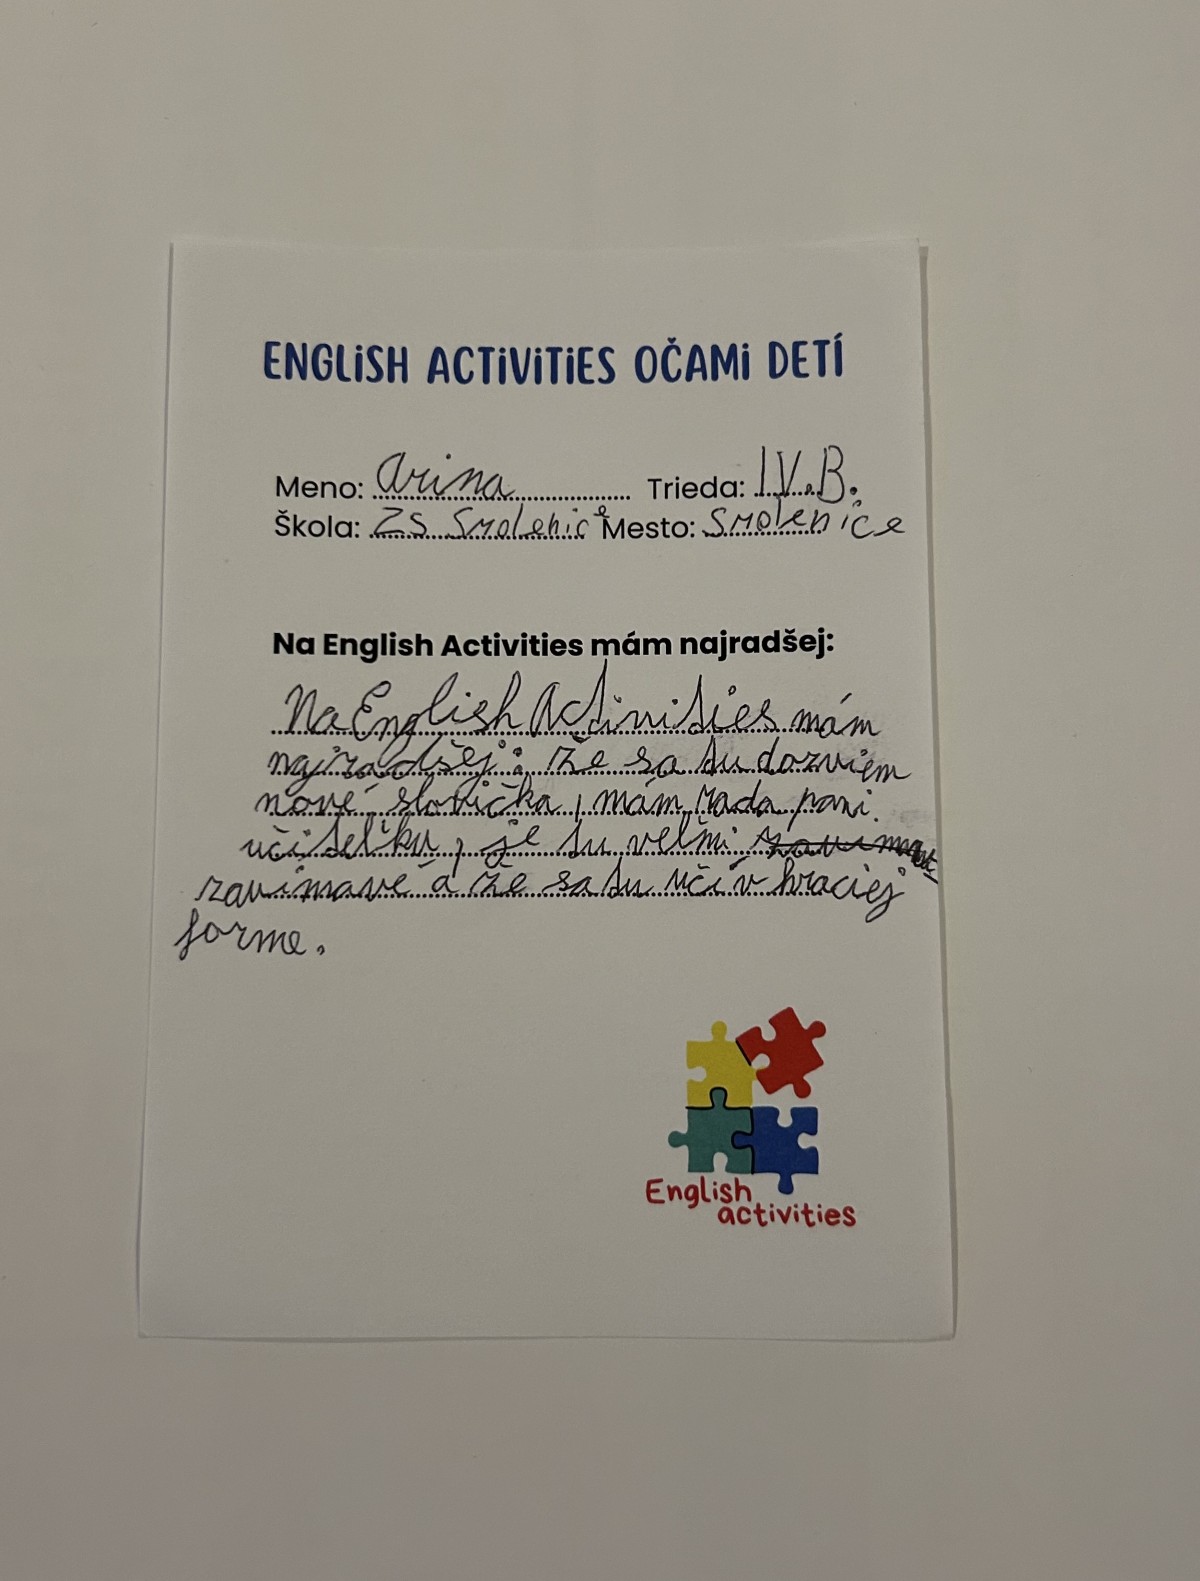 ENGLISH ACTIVITIES OČAMI DETÍ
Meno: Arina Trieda: IV.B.
Škola: ZŠ Smolenice Mesto: Smolenice
Na English Activities mám najradšej:
Na English Activities mám
najradšej: že sa tu dozviem
nové slovíčka, mám rada pani
učiteľku, je tu veľmi
zaujímavé a že sa tu učí v hraciej
forme.
English
activities